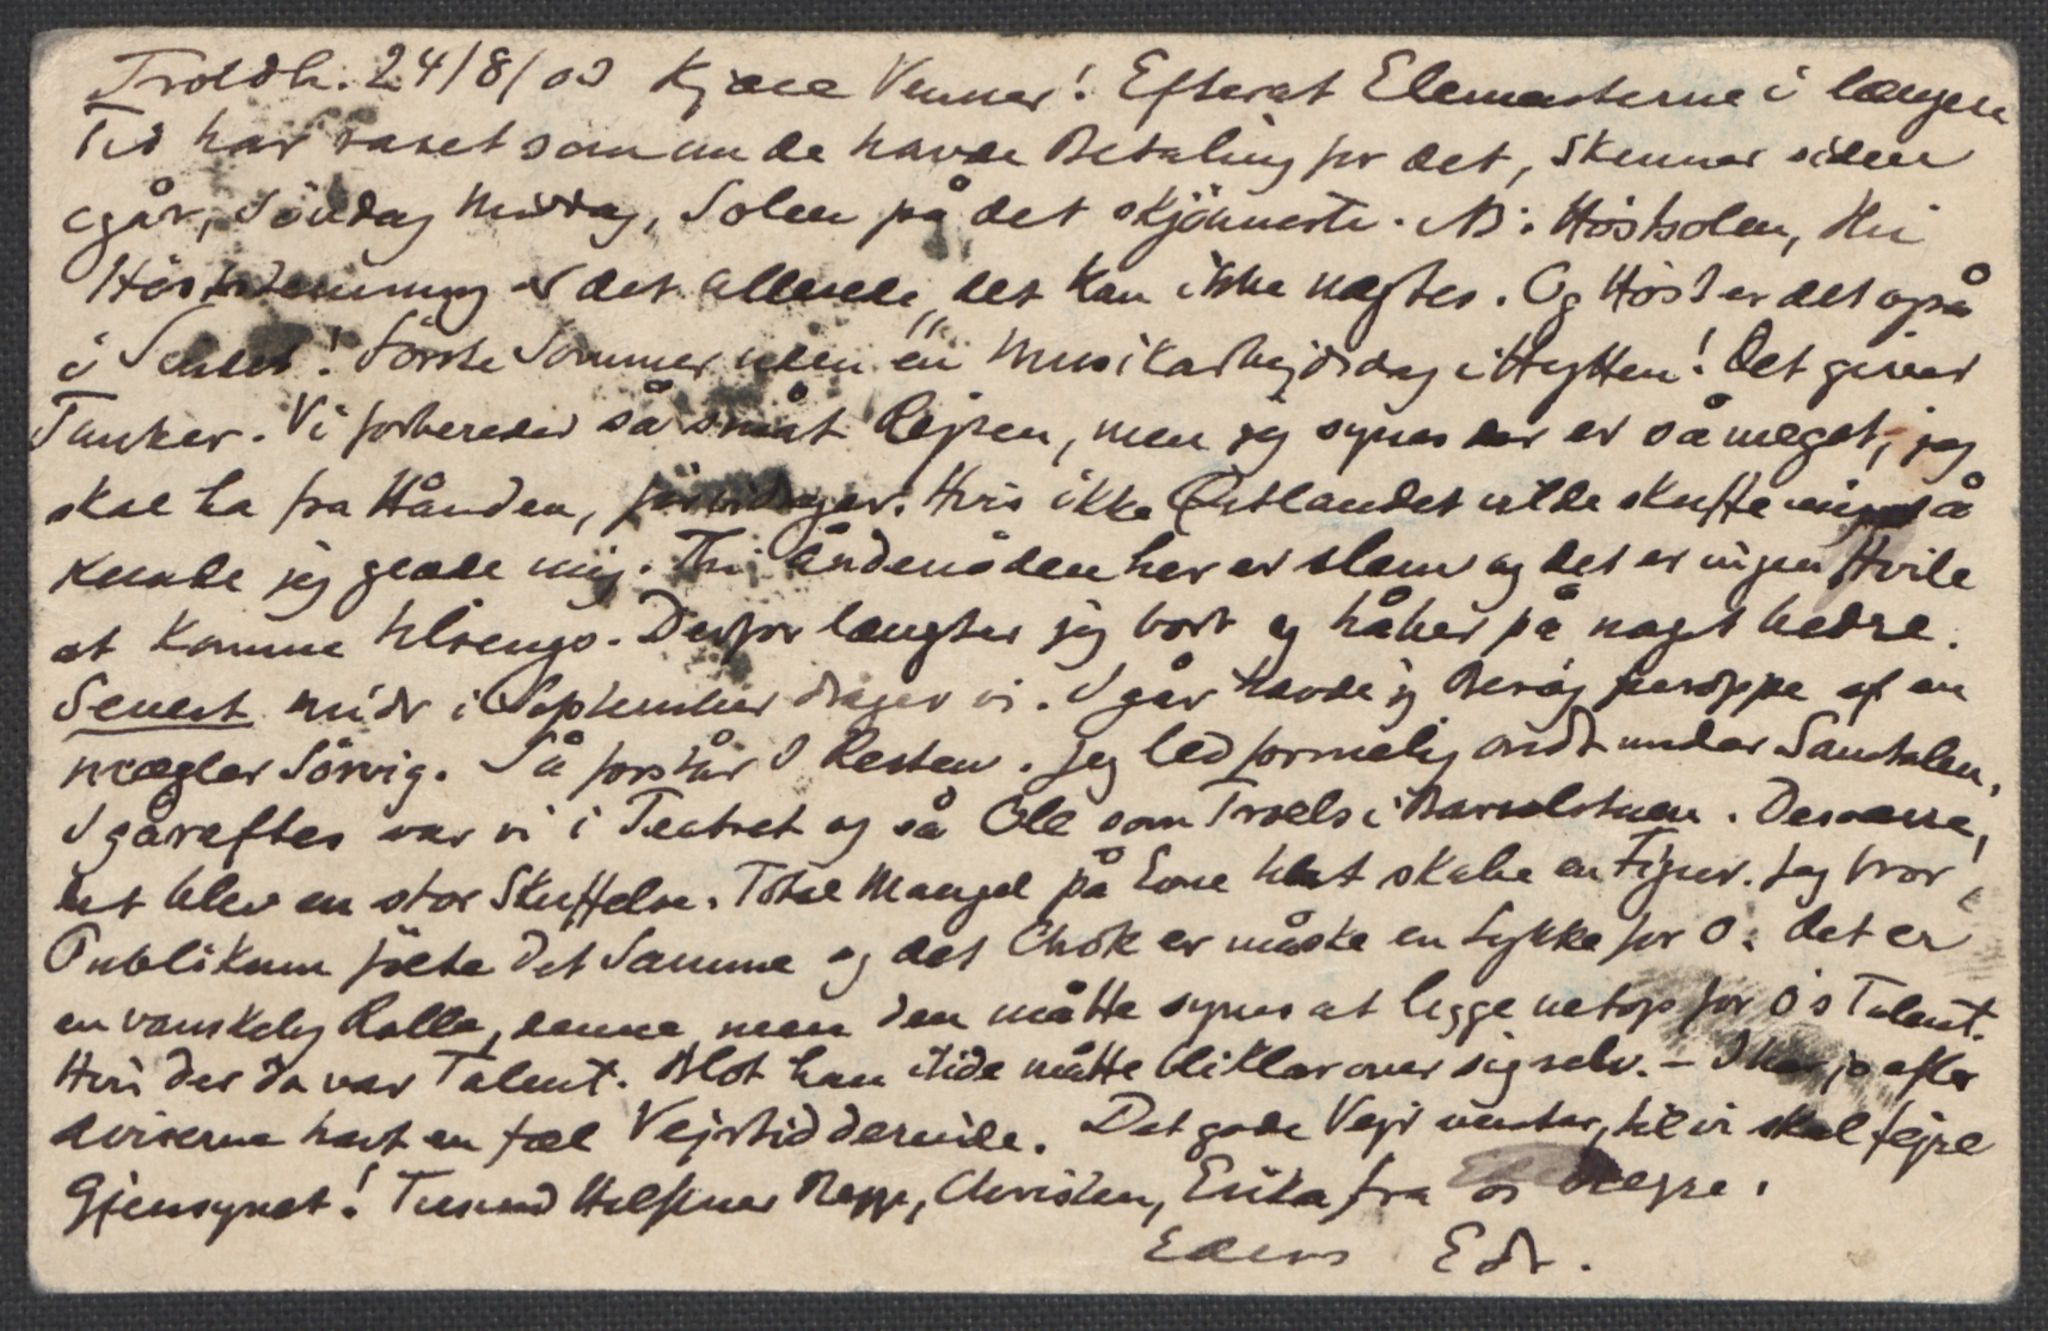 Troldh. 24/8/03 Kjære Venner! Efterat Elementerne i længere
Tid har raset som om de havde Betaling for det, skinner siden
igår, Söndag Middag, Solen på det skjönneste. NB: Höstsolen, thi
Höststemning er det allerede, det kan ikke nægtes. Og Höst er det også
i Sindet! Förste Sommer uden én Musikarbejdsdag i Hytten! Det giver
Tanker. Vi forbereder så småt Rejsen, men jeg synes der er så meget, jeg
skal ha fra Hånden, för vi drager. Hvis ikke Østlandet vilde skuffe mig, så
kunde jeg glæde mig. Thi Åndenöden her er slem og det er ingen Hvile
at komme tilsengs. Derfor længter jeg bort og håber på noget bedre.
Senest midt i September drager vi. Igår havde jeg Besög heroppe af en
mægler Sörvig. Så forstår I Resten. Jeg led formelig ondt under Samtalen.
Igåraftes var vi i Teatret og så Ole som Troels i Barselstuen. Desværre,
det blev en stor Skuffelse. Total Mangel på Evne til at skabe en Figur. Jeg tror,
Publikum fölte det Samme og det Chok er måske en Lykke for O. Det er
en vanskelig Rolle, denne men den måtte synes at ligge netop for O's Talent.
Hvis der da var Talent. Blot han itide måtte bli klar over sig selv. – I har jo efter
Aviserne havt en fæl Vejrtid derinde. Det gode Vejr venter, til vi skal fejre
Gjensynet! Tusind Hilsener Bepp, Christen, Erika fra os begge.
Eders Edv.